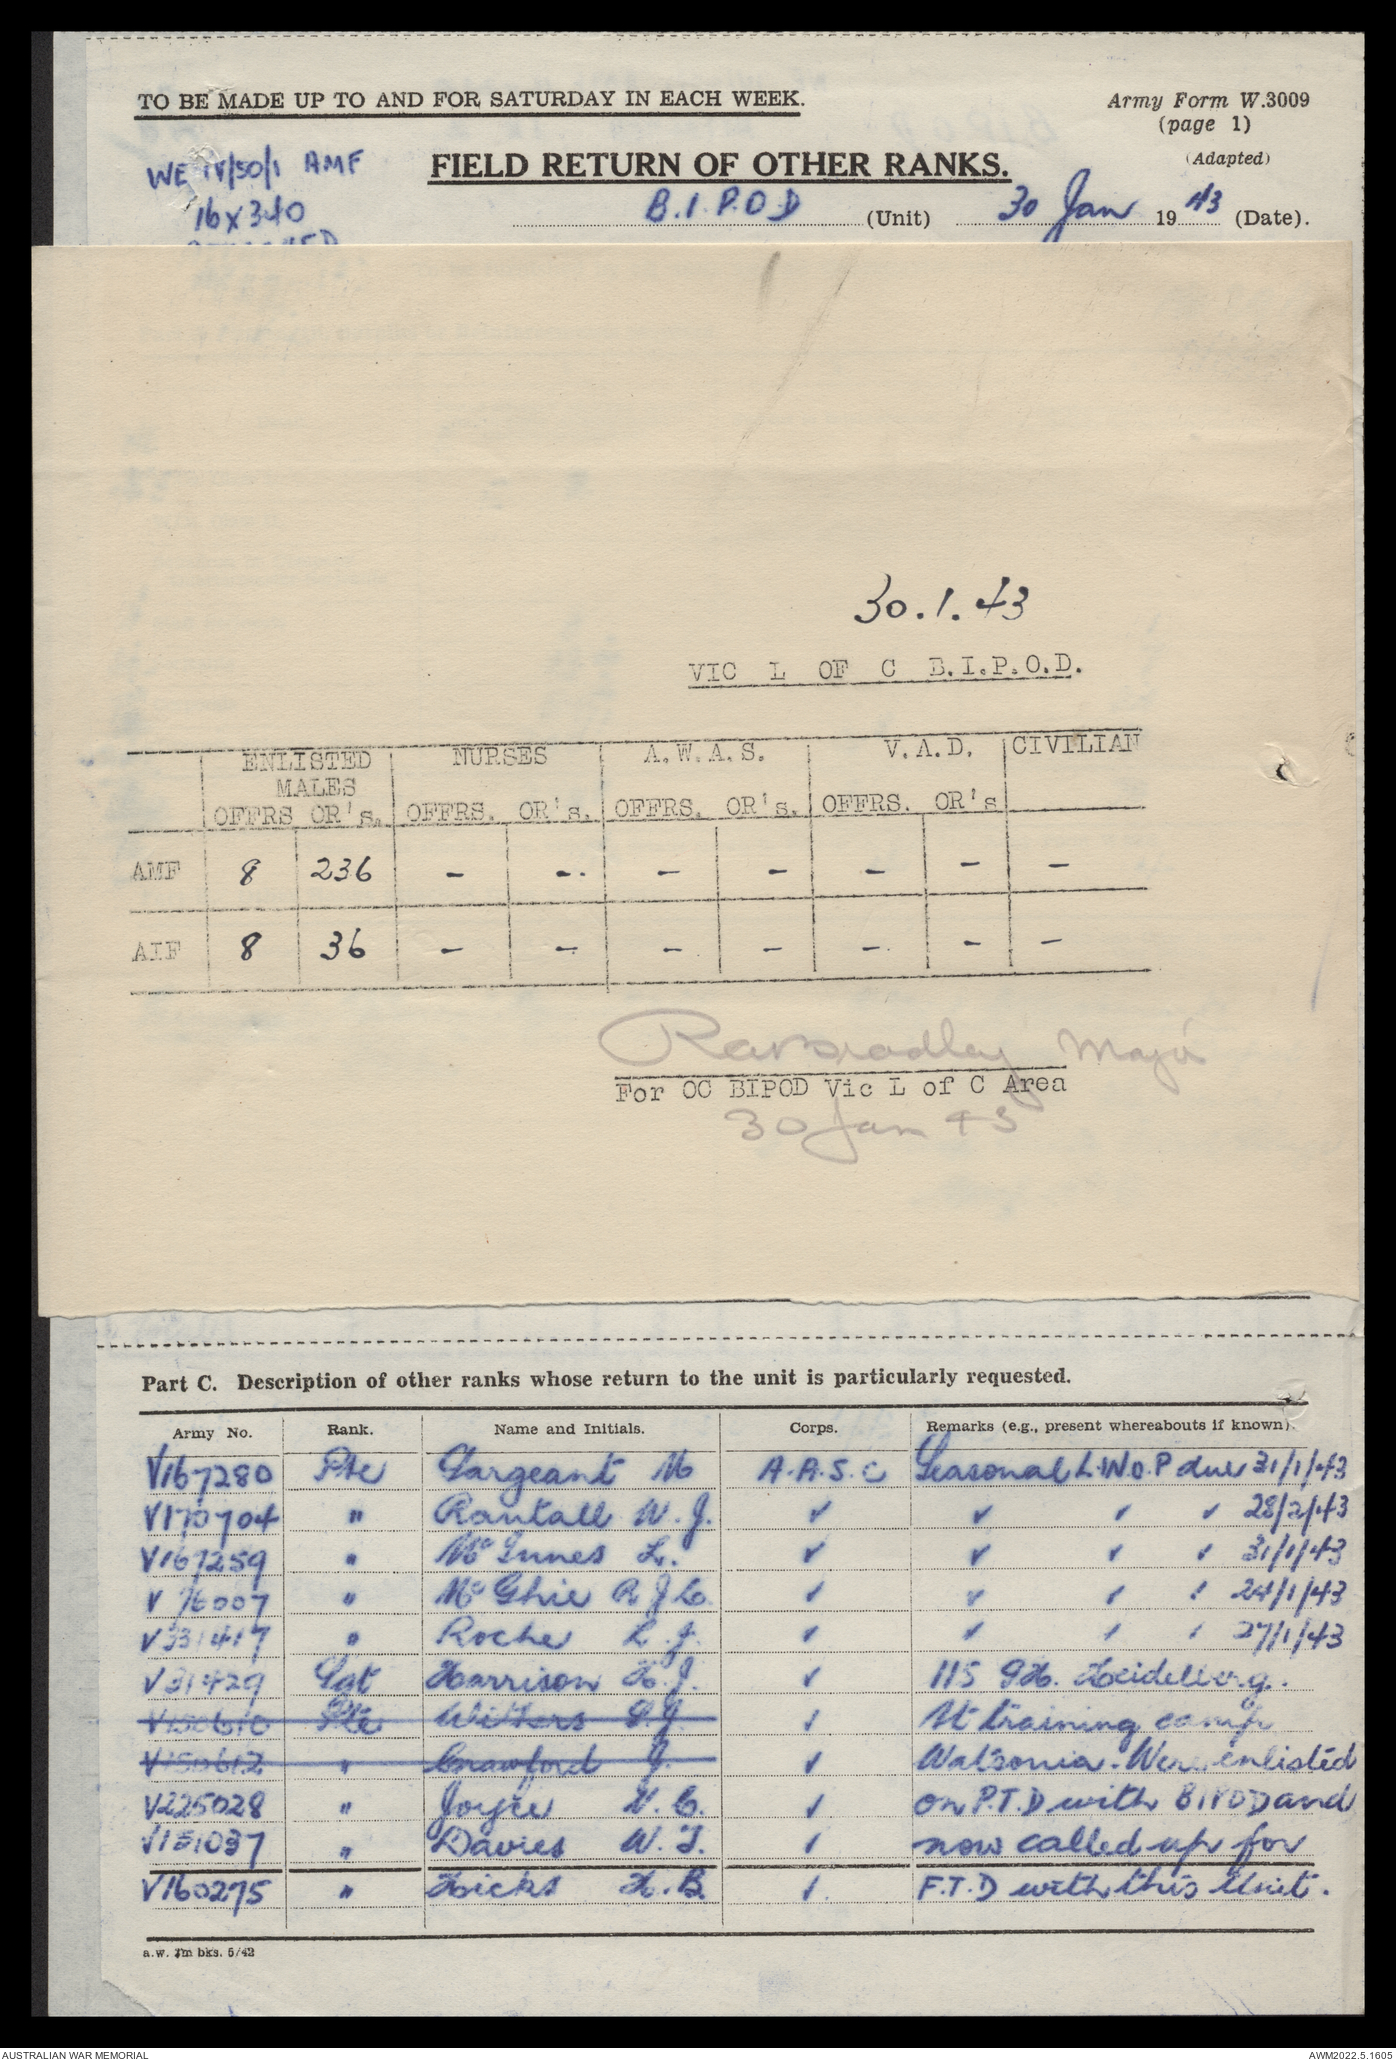 TO BE MADE UP TO AND FOR SATURDAY IN EACH WEEK.
Army Form W.3009
(page 1)
(Adapted)
WE IV/50/1 AMF
16 x 340
FIELD RETURN OF OTHER RANKS.
B.I.P.O.D (Unit) 30 Jan 1943 (Date).
30.1.43
VIC L OF C B.I.P.O.D.
ENLISTED MALES NURSES A.W.A.S. V.A.D. CIVILIAN
OFFRS OR's. OFFRS. OR's. OFFRS. OR's. OFFRS. OR's
AMF 8 236 - - - - - - -
AIF 8 36 - - - - - - -
Bradley Major
For OC BIPOD Vic L of C Area
30 Jan 43
Part C. Description of other ranks whose return to the unit is particularly requested.
Army No. Rank. Name and Initials. Corps. Remarks (e.g., present whereabouts if known).
V167280 Pte Sargeant M A.A.S.C Seasonal L.W.O.P due 31/1/43
V170704 " Rantall W.J. ✓ ✓ ✓ ✓ 28/2/43
V167259 " McInnes L. ✓ ✓ ✓ ✓ 31/1/43
V76007 " McGhie R J L ✓ ✓ ✓ ✓ 24/1/43
V331417 " Roche L.J. ✓ ✓ ✓ ✓ 27/1/43
V31429 Sgt Harrison H.J. ✓ 115 GH. Heidelberg.
V150610 Pte Withers J. ✓ At training camp
V150612 " Crawford J. ✓ Watsonia. Were enlisted
V225028 " Joyce W.C. ✓ on P.T.D with BIPOD and
V151037 " Davies W.T. ✓ now called up for
V160275 " Hicks H.B. ✓ F.T.D with this Unit.
a.w. 7m bks. 5/42
AUSTRALIAN WAR MEMORIAL
AWM2022.5.1605